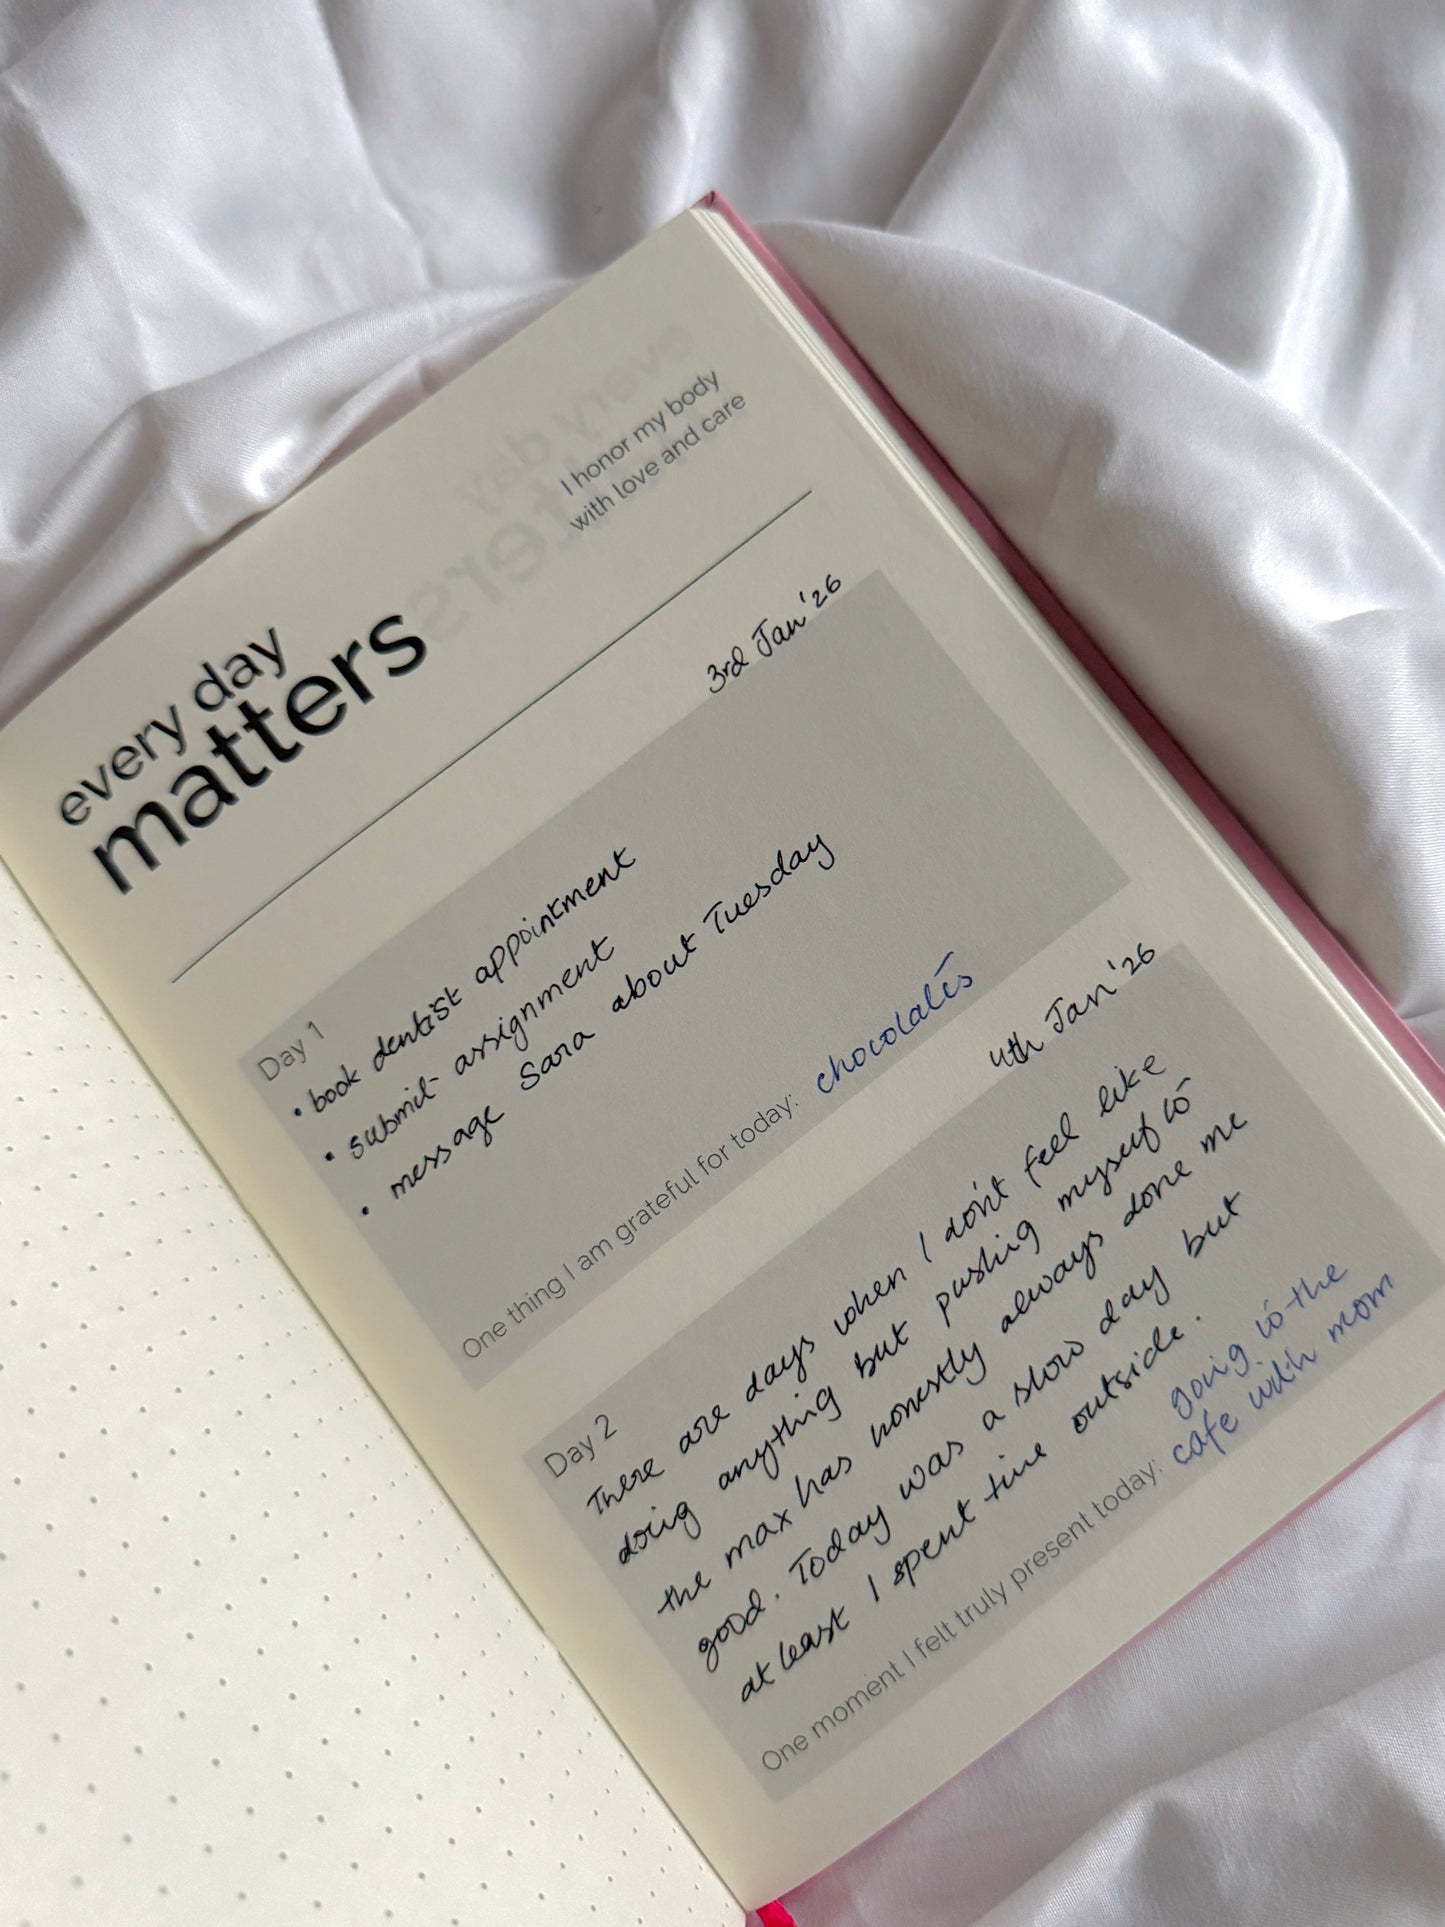 every day
matters
I honor my body
with love and care
3rd Jan '26
Day 1
• book dentist appointment
• submit assignment
• message Sara about Tuesday
One thing I am grateful for today: chocolates
4th Jan '26
Day 2
There are days when I don't feel like
doing anything but pushing myself to
the max has honestly always done me
good. Today was a slow day but
at least I spent time outside.
going to the
One moment I felt truly present today: cafe with mom